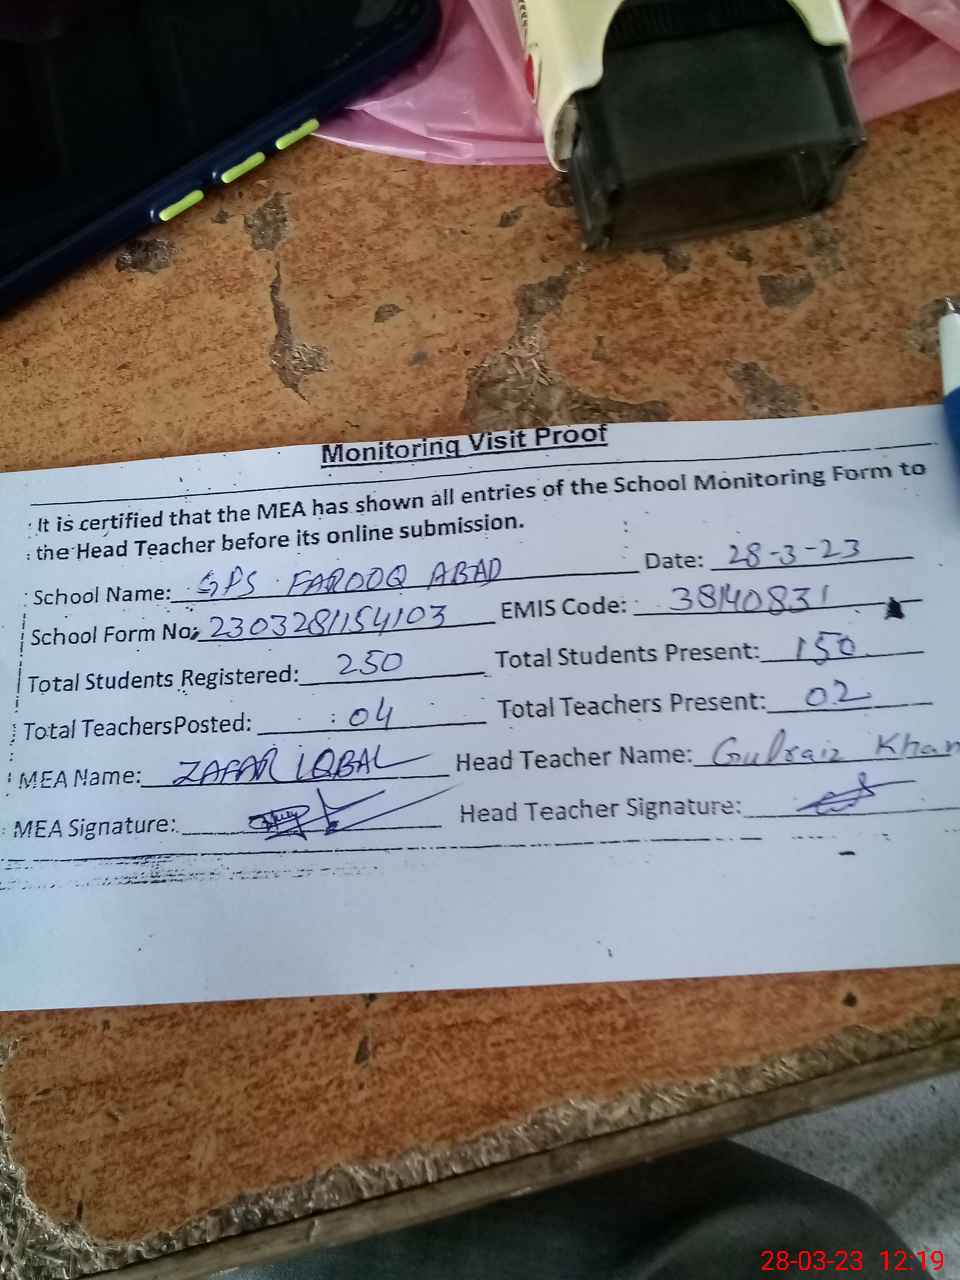 Monitoring Visit Proof
It is certified that the MEA has shown all entries of the School Monitoring Form to
the Head Teacher before its online submission.
School Name: GPS FAROOQ ABAD Date: 28-3-23
School Form No: 2303281154103 EMIS Code: 38140831
Total Students Registered: 250 Total Students Present: 150
Total TeachersPosted: 04 Total Teachers Present: 02
MEA Name: ZAFAR IQBAL Head Teacher Name: Gulraiz Khan
MEA Signature: Head Teacher Signature:
28-03-23 12:19